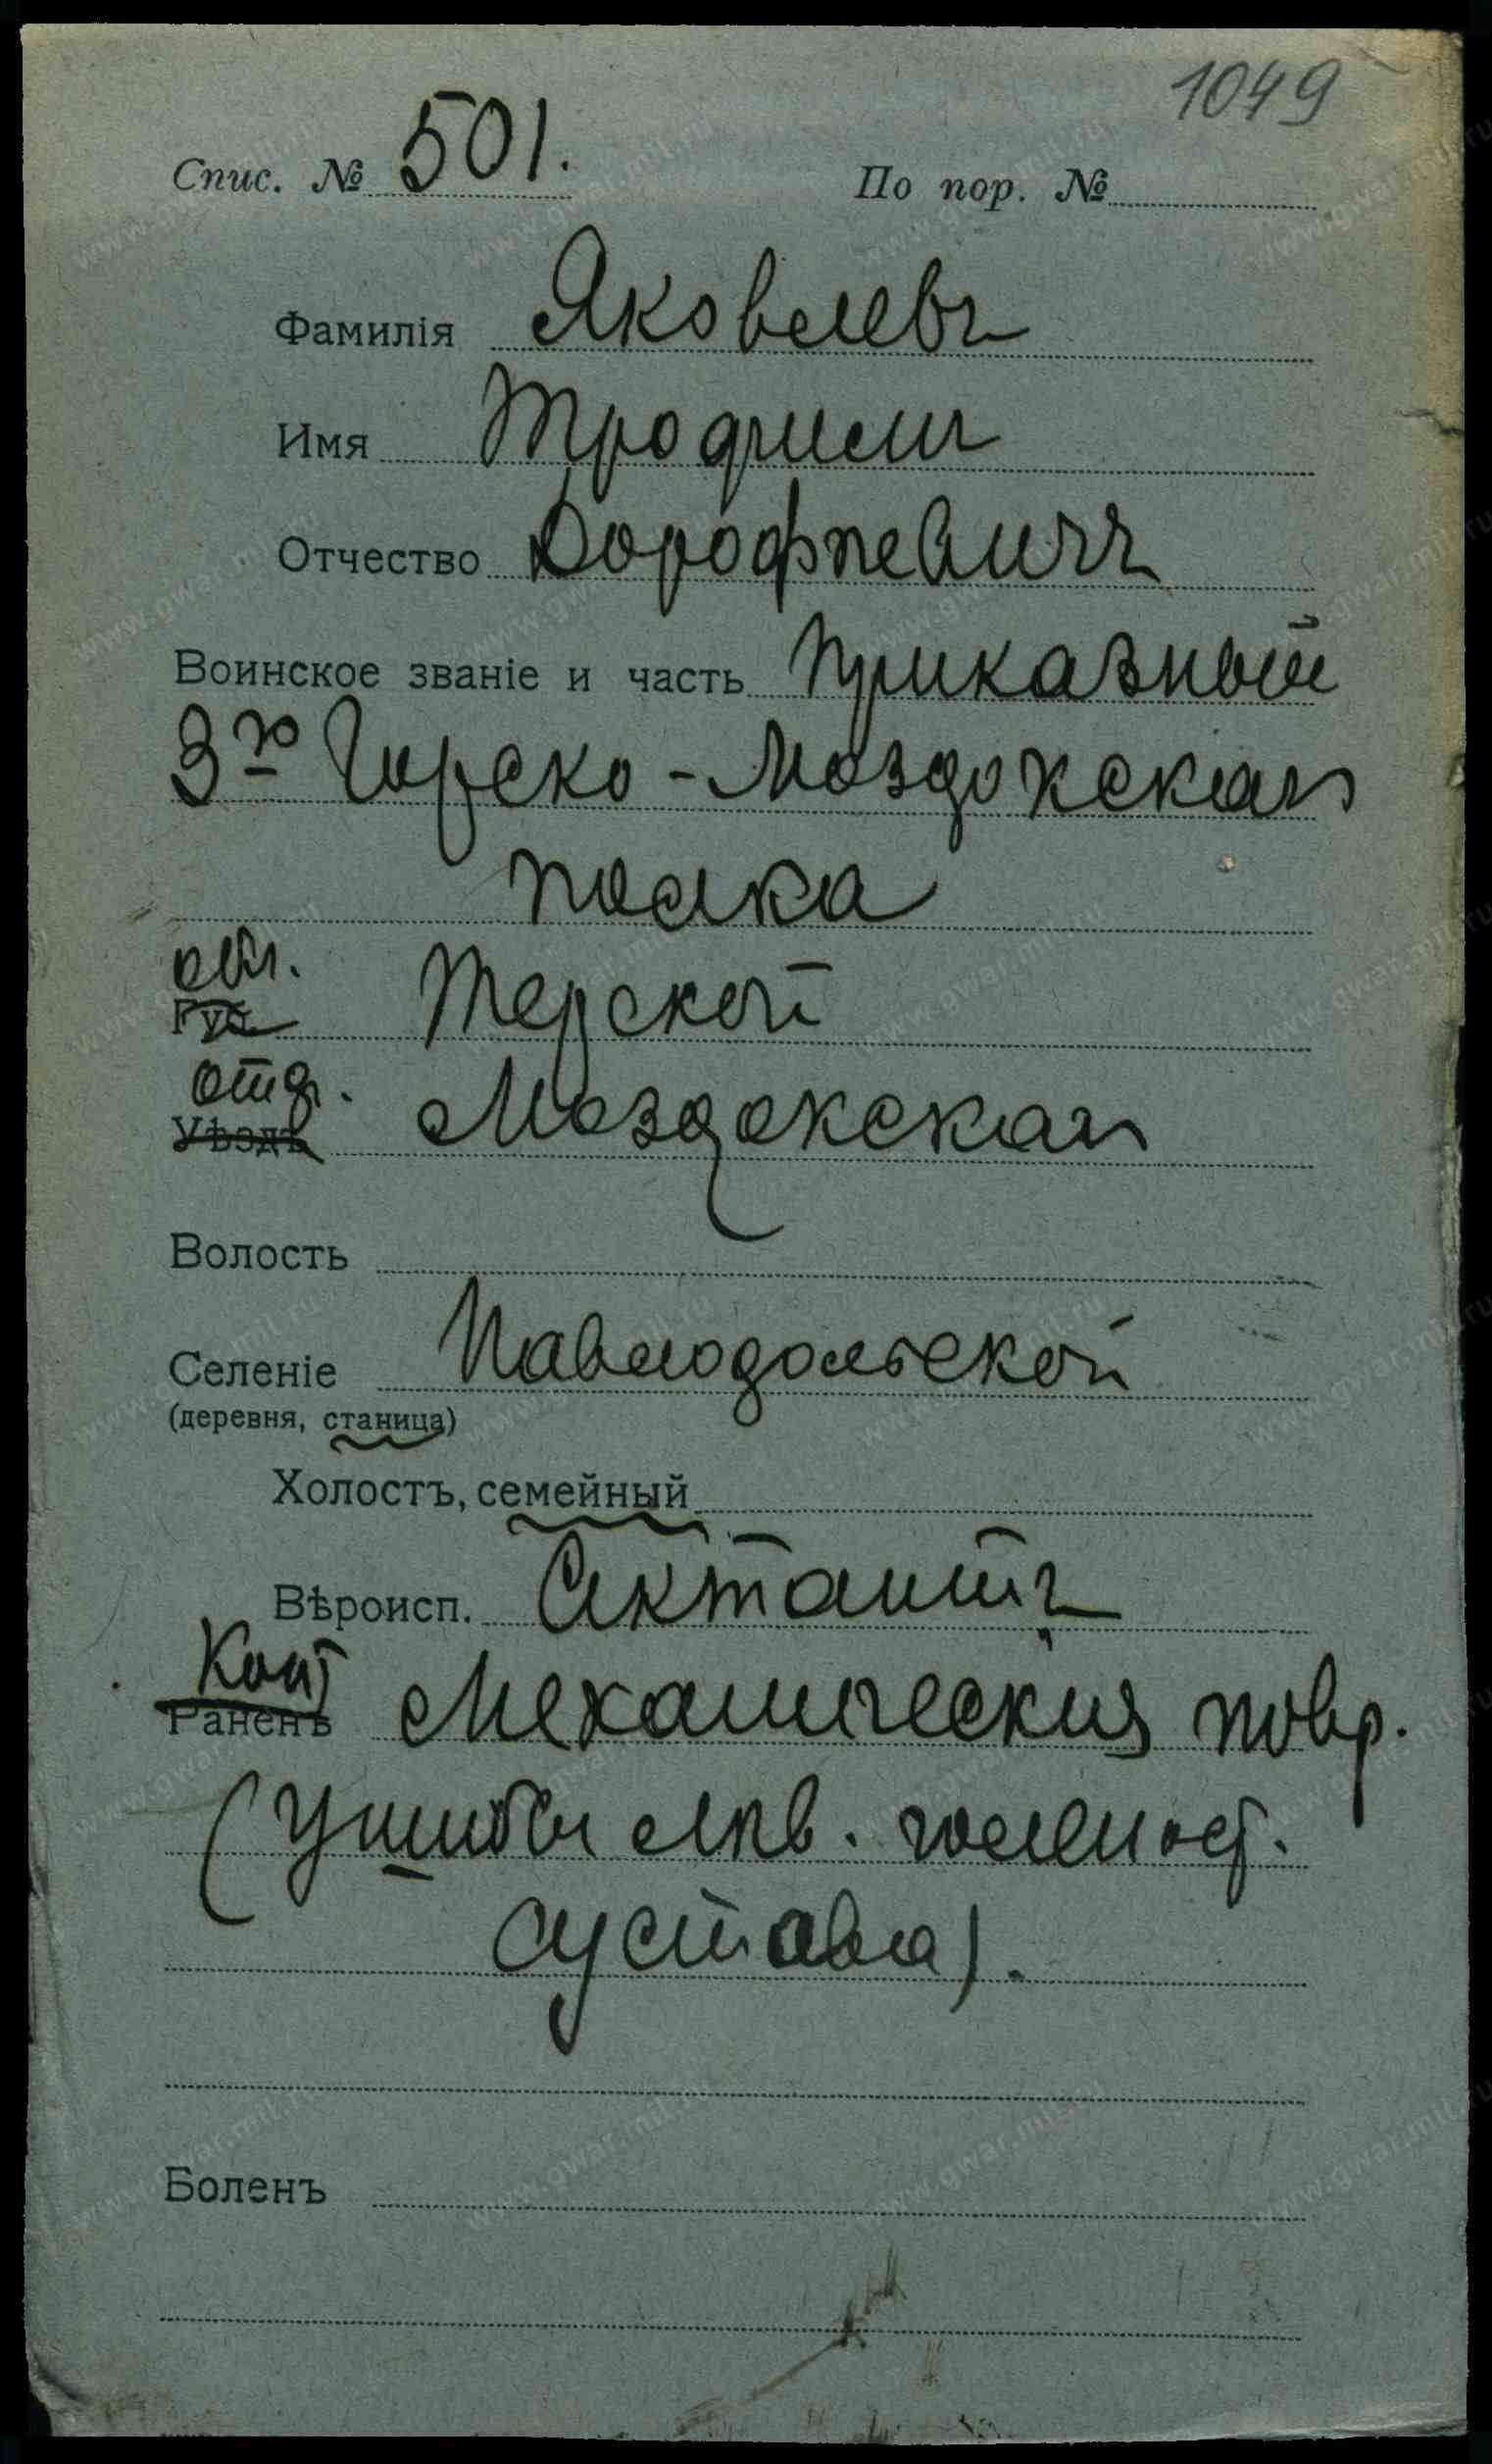 1049
Спис. № 501. По пор. №
Фамилія Яковлевъ
Имя Трофимъ
Отчество Дорофѣевичъ
Воинское званіе и часть Приказный
3го Горско-Моздокскаго
полка
обл.
Губ. Терской
отд.
Уѣздъ Моздокскаго
Волость
Селеніе Павлодольской
(деревня, станица)
Холостъ, семейный
Вѣроисп. Сектантъ
Конт
Раненъ Механическия повр.
(Ушибы лѣв. голеност.
сустава).
Боленъ